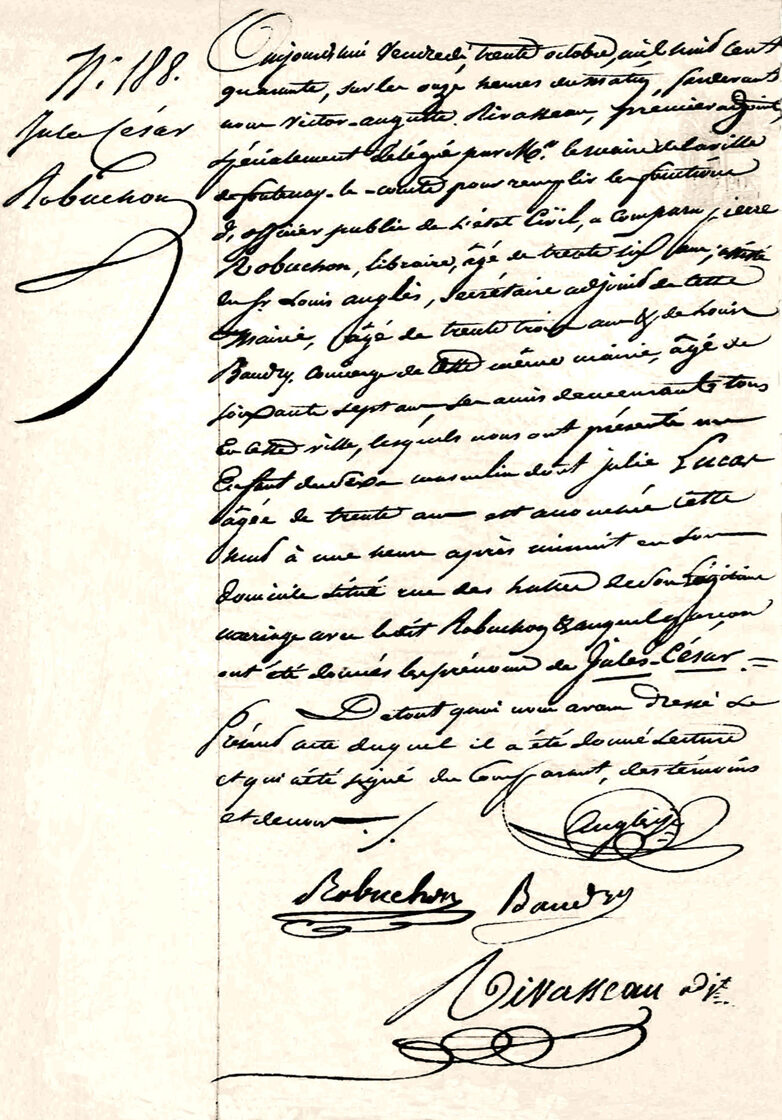 N.° 188.
Jules César
Robuchon
Aujourd'hui Vendredi, trente octobre, mil huit cent
quarante, sur les onze heures du matin, pardevant
nous Victor-auguste Rivasseau, premier adjoint,
spécialement délégué par Mr. le maire de la ville
de fontenay-le-comte pour remplir les fonctions
d'officier public de l'état Civil, a comparu pierre
Robuchon, libraire, âgé de trente six ans, assisté
du Sr. Louis anglès, Secrétaire adjoint de cette
Mairie, âgé de trente trois ans & de Louis
Baudry, concierge de cette même mairie, âgé de
soixante sept ans, ses amis demeurants tous
En cette ville, lesquels nous ont présenté un
Enfant du Sexe masculin dont julie Lucas
âgée de trente ans est accouchée cette
nuit à une heure après minuit en son
domicile situé rue des halles de son Légitime
mariage avec ledit Robuchon & auquel garçon
ont été donnés les prénoms de Jules-César. =
De tout quoi nous avons dressé Le
Présent acte duquel il a été donné Lecture
et qui a été signé du Comparant, des témoins
et de nous ./.
Anglès
Robuchon Baudry
Rivasseau adjt.